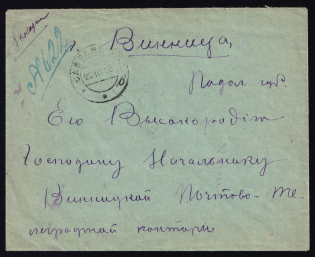 № 622
Винница,
Подол губ.
Его Высокородію
Господину Начальнику
Винницкой Почтово-Те
леграфной конторы